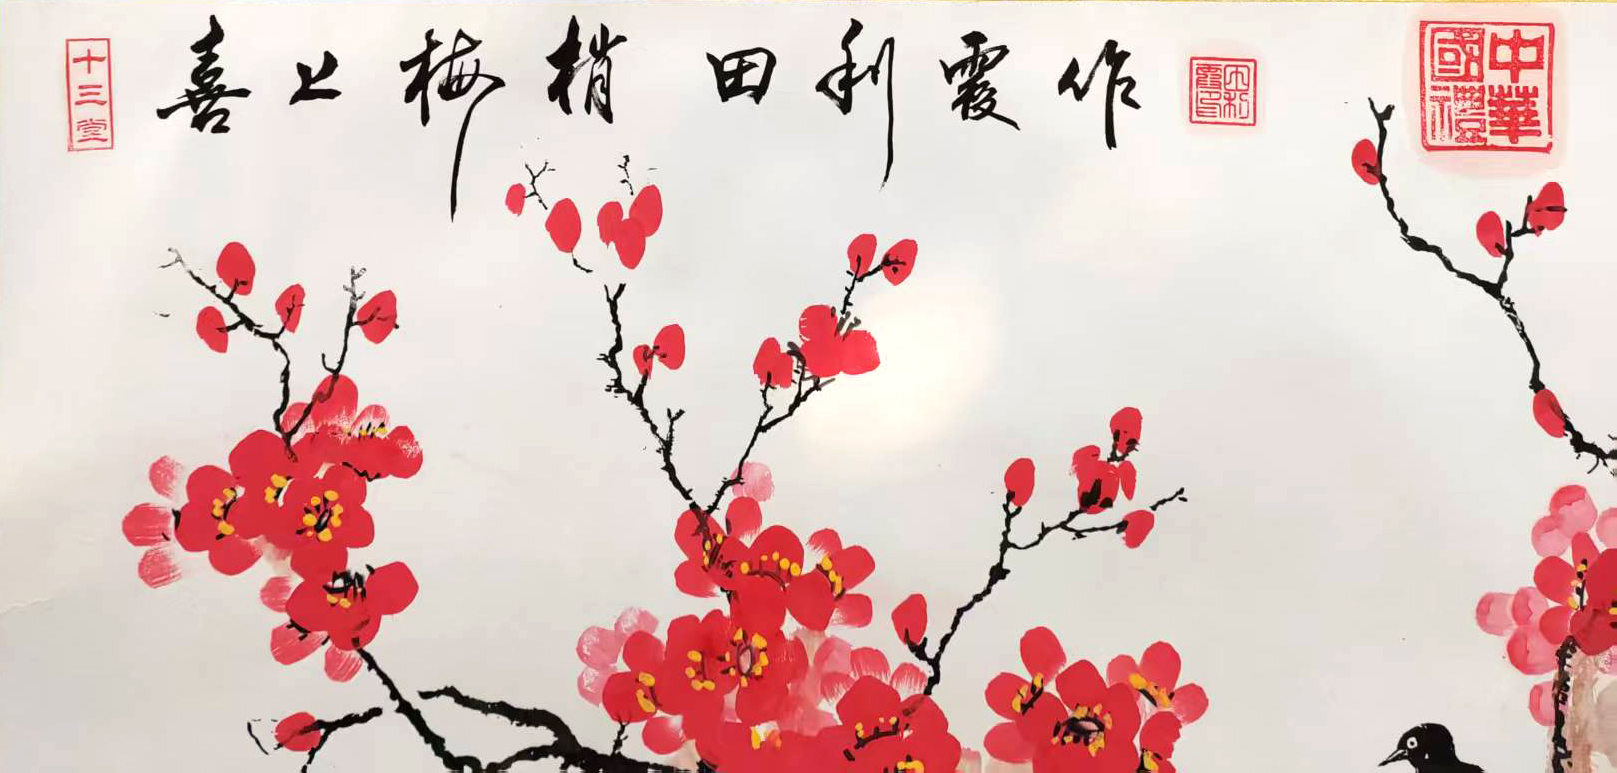 十三堂
喜上梅梢 田利霞作
田利霞印
中華國禮